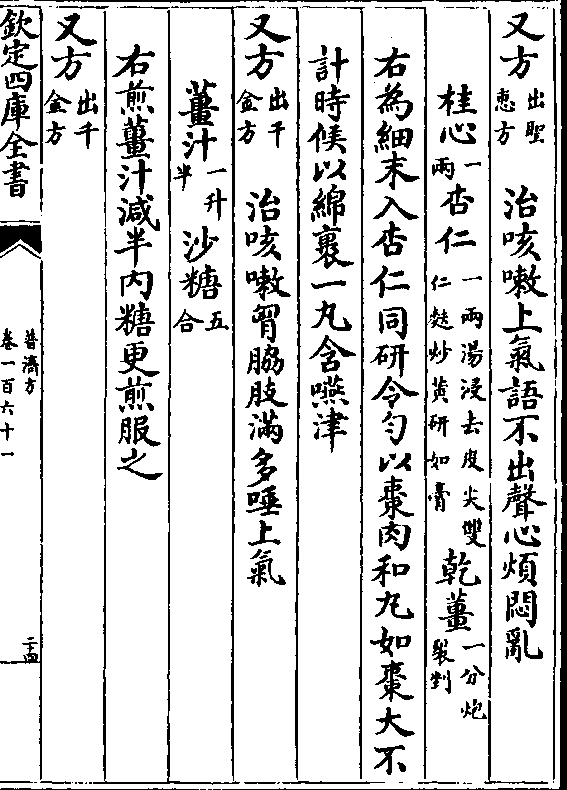 又方出聖惠方　治咳嗽上氣語不出聲心煩悶亂
桂心一兩杏仁一兩湯浸去皮尖雙仁麩炒黄研如膏乾薑一分炮裂剉
右為細末入杏仁同研令勻以棗肉和丸如棗大不
計時候以綿裹一丸含嚥津
又方出千金方　治咳嗽胷脇肢滿多唾上氣
薑汁一升半沙糖五合
右煎薑汁減半内糖更煎服之
又方出千金方
欽定四庫全書
普濟方
卷一百六十一
二十四